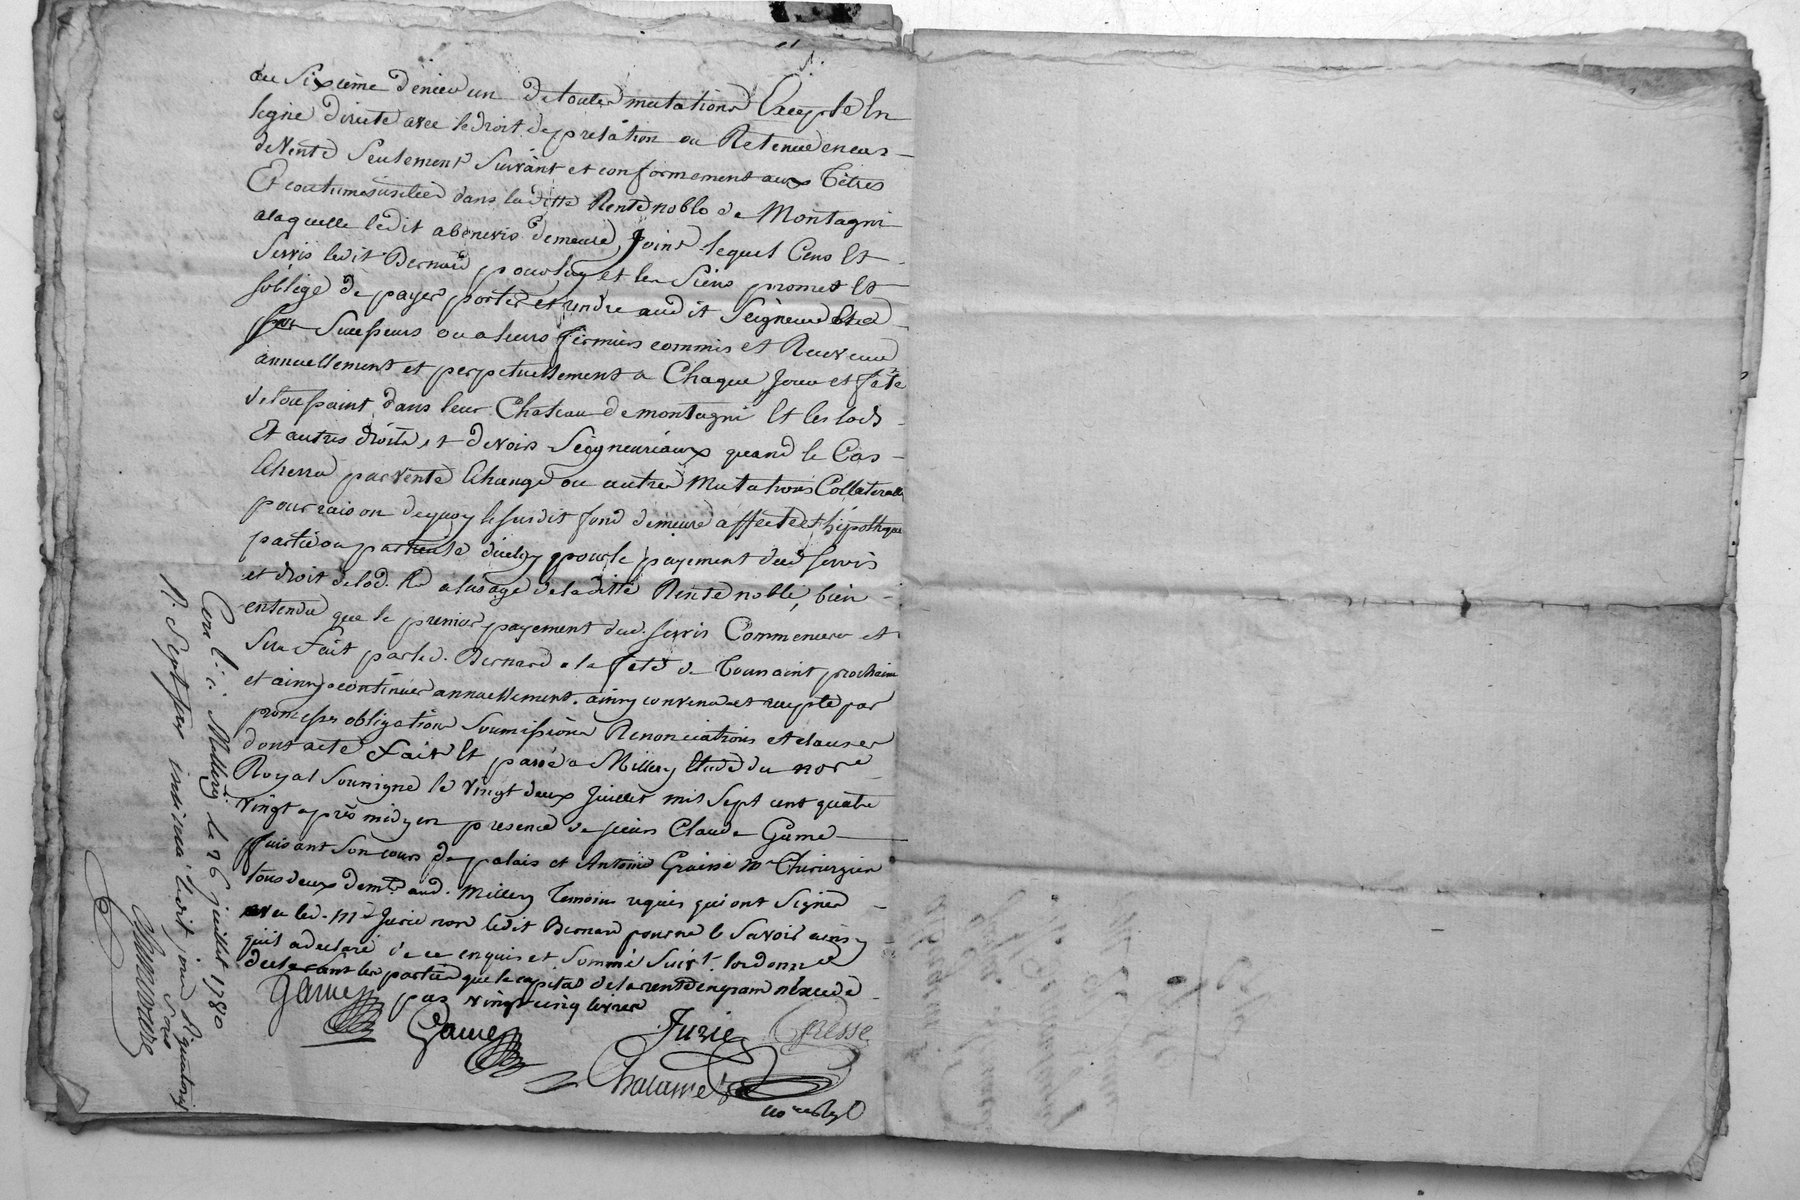 au Sixieme denier un de toutes mutations Excepté En
legne directe avec le droit de prelation ou Retenue en cas
de Vente Seulement Suivant et conformement aux Titres
Et coutume usitée dans la ditte Rente noble de Montagni
alaquelle ledit abenevis demeure Joint lequel Cens Et
Servis ledit Bernard pour luy et les Siens promet Et
soblige de payer porter et rendre audit Seigneur Et a
Successeurs ou a leurs fermiers commis et Receveur
annuellement et perpetuellement a Chaque Jour et fete
de toussaint dans leur Chateau de montagni Et les lods
Et autres droits et devoirs Seigneuriaux quand le Cas
Echerra par vente Echange ou autres Mutations Collateralle
pour raison dequoy le susdit fond demeure affecté et hipotheque
partie ou particule diceluy pour le payement dud servis
et droit de lod. a lusage de la ditte Rente noble, bien
entendu que le premier payement dud. servis Commencera et
Sera Fait par led. Bernard a la fete de Toussaint prochaine
et ainsy continuer annuellement. ainsy convenu et accepté par
promesses obligations Soumissions Renonciations et clauses
dont acte Fait Et passé a Millery Etude du nore
Royal Soussigné le vingt deux Juillet mil Sept cent quatre
vingt après midy en presence de sieurs Claude Game
faisant Son cours de palais et Antoine Graisse Me Chirurgien
tous deux demts. aud. Millery Temoins requis qui ont Signé
avec led. Md Jurie non ledit Bernard pour ne le Savoir ainsy
quil a declaré de ce enquis et Sommé Suivt. lordonnce
declarant les parties que le capital de la rente en grain nexcede
pas vingt cinq livres
Game
Game Jurie Gresse
Chalamel
nore Royl
Con lé à Millery le 26 juillet 1780
R. Sept sous